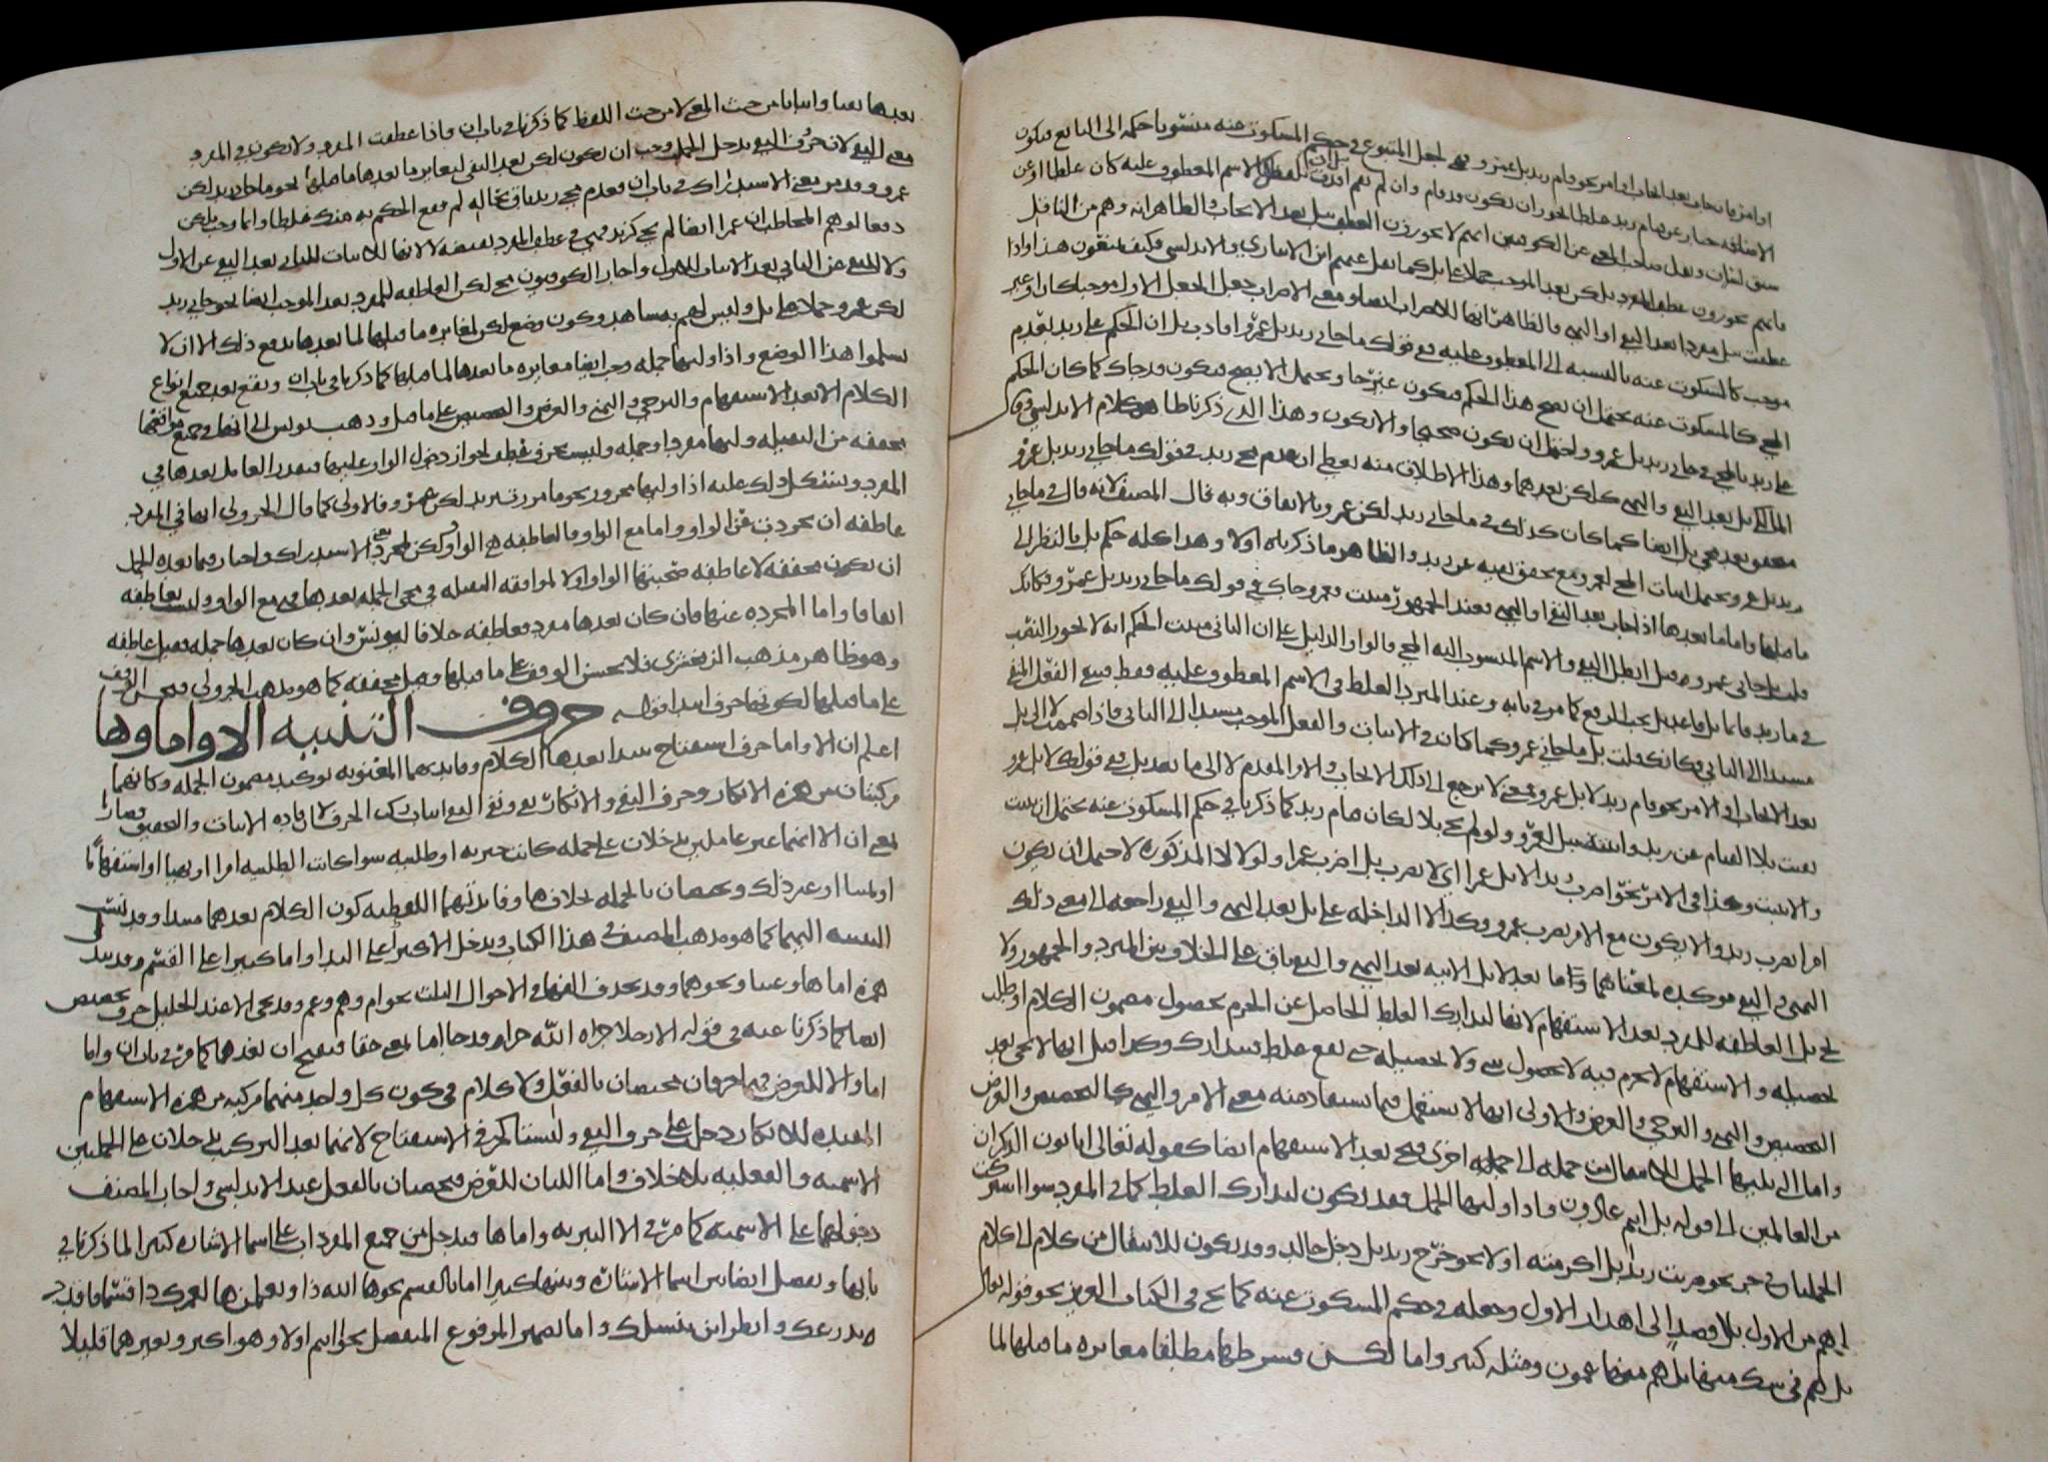 او امر
الاضافه
سبق لسان ونقل صاحب المعنى عن الكوفيين انهم لا يجوزون العطف ببل بعد الايجاب والظاهر انه وهم من الناقل
فانهم يجوزون عطف المفرد بلكن بعد الموجب حملا على بل كما نقل عنهم ابن الانبارى والاندلسى فكيف يمنعون هذا واذا
عطفت ببل مفردا بعد النفى او النهى فالظاهر انها للاضراب ايضا ومعنى الاضراب جعل الحكم الاول موجبا كان او غير
موجب كالمسكوت عنه بالنسبه الى المعطوف عليه ففى قولك ما جانى زيد بل عمرو افادت بل ان الحكم على زيد بعدم
المجى كالمسكوت عنه يحتمل ان يصح هذا الحكم فيكون غير جا ويحتمل الا يصح فيكون قد جاك كما كان الحكم
على زيد بالمجى فى جانى زيد بل عمرو احتمل ان يكون صحيحا والا يكون وهذا الذى ذكرنا ظاهر كلام الاندلسى وقال
ابن مالك بل بعد النفى والنهى كلكن بعدهما وهذا الاطلاق منه يعطى ان عدم مجى زيد فى قولك ما جانى زيد بل عمرو
متحقق بعد مجى بل ايضا كما كان كذلك فى ما جانى زيد لكن عمرو بالاتفاق وبه قال المصنف لانه قال فى ما جانى
زيد بل عمرو يحتمل اثبات المجى لعمرو مع تحقق نفيه عن زيد والظاهر ما ذكرناه اولا وهذا كله حكم بل بالنظر الى
ما قبلها واما ما بعدها اذا جات بعد النفى او النهى فعند الجمهور مثبت فعمرو جاك فى قولك ما جانى زيد بل عمرو فكانك
قلت بل جانى عمرو فبل ابطل النفى والاسم المنسوب اليه المجى قالوا والدليل على ان الثانى مثبت الحكم انه لا يجوز النصب
فى ما زيد قائما بل قاعد بل يجب الرفع كما مر فى بابه وعند المبرد الغلط فى الاسم المعطوف عليه فقط فيبقى الفعل المنفى
مسندا الى الثانى فكانك قلت بل ما جانى عمرو كما كان فى الاثبات والفعل الموجب مسندا الى الثانى واذا ضممت لا الى بل
بعد الايجاب او الامر نحو قام زيد لا بل عمرو فمعنى لا يرجع الى ذلك الايجاب والامر المقدم لا الى ما بعد بل ففى قولك لا بل عمرو
نفيت بلا القيام عن زيد واثبته ببل لعمرو ولو لم يجى بلا لكان قيام زيد كما ذكرنا فى حكم المسكوت عنه يحتمل ان يثبت
والا يثبت وكذا فى الامر نحو اضرب زيدا لا بل عمرا اى لا تضرب زيدا بل اضرب عمرا ولولا لا المذكوره لاحتمل ان يكون
امرا بضرب زيد والا يكون مع الامر بضرب عمرو وكذا لا الداخله على بل بعد النهى والنفى راجعه الى معنى ذلك
النهى والنفى موكده لمعناهما واما بعد لا بل الاتيه بعد النهى والنفى باق على الخلاف بين المبرد والجمهور ولا
تجى بل العاطفه للمفرد بعد الاستفهام لانها لتدارك الغلط الحاصل عن الجزم بحصول مضمون الكلام او طلب
تحصيله والاستفهام لا جزم فيه لا بحصول شى ولا تحصيله حتى يقع غلط فيتدارك وكذا قيل انها لا تجى بعد
التحضيض والتمنى والترجى والعرض والاولى انها لا تستعمل فيما يستفاد منه معنى الامر والنهى كالتحضيض والعرض
واما التى تليها الجمل للانتقال من جمله الى جمله اخرى وتجى بعد الاستفهام ايضا كقوله تعالى اتاتون الذكران
من العالمين الى قوله بل انتم قوم عادون واذا وليها الجمل فقد يكون لتدارك الغلط كما فى المفرد سوا اشتركت
الجملتان فى جز نحو ضربت زيدا بل اكرمته او لا نحو خرج زيد بل دخل خالد وقد يكون للانتقال من كلام الى كلام
اهم من الاول بلا قصد الى اهدار الاول وجعله فى حكم المسكوت عنه كما يجى فى الكتاب العزيز نحو قوله تعالى
بل هم فى شك منها بل هم منها عمون ومثله كثير واما لكن فشرطها مطلقا مغايره ما قبلها لما
بعدها نفيا واثباتا من حيث المعنى لا من حيث اللفظ كما ذكرنا فى باب ان فاذا عطفت المفرد ولا يكون فى المفرد
معنى النفى لان حرف النفى يدخل الجمل وجب ان يكون لكن بعد النفى ليغاير ما بعدها ما قبلها نحو ما جانى زيد لكن
عمرو وقد مر معنى الاستدراك فى باب ان فعدم مجى زيد باق بحاله لم يقع الحكم به منك غلطا وانما جى بلكن
دفعا لتوهم المخاطب ان عمرا ايضا لم يجى كزيد فهى فى عطف المفرد نقيضه لا لانها للاثبات للثانى بعد النفى عن الاول
ولا للنفى عن الثانى بعد الاثبات للاول واجاز الكوفيون مجى لكن العاطفه للمفرد بعد الموجب ايضا نحو جانى زيد
لكن عمرو حملا على بل وليس لهم به شاهد وكون وضع لكن لمغايره ما قبلها لما بعدها يدفع ذلك الا ان لا
يسلموا هذا الوضع واذا وليها جمله وجب ايضا مغايره ما بعدها لما قبلها كما ذكرنا فى باب ان وتقع بعد جميع انواع
الكلام الا بعد الاستفهام والترجى والتمنى والعرض والتحضيض على ما قيل وذهب يونس الى انها فى جميع مواقعها
مخففه من الثقيله وليها مفرد او جمله وليست بحرف عطف لجواز دخول الواو عليها فيقدر العامل بعدها فى
المفرد ويشكل ذلك عليه اذا وليها مجرور نحو ما مررت بزيد لكن عمرو فالاولى كما قال الجزولى انها فى المفرد
عاطفه ان تجردت عن الواو واما مع الواو فالعاطفه هى الواو ولكن لمجرد معنى الاستدراك واختار فيما بعده الجمل
ان تكون مخففه لا عاطفه صحبتها الواو اولا لموافقه الثقيله فى مجى الجمله بعدها فهى مع الواو وليست بعاطفه
اتفاقا واما المجرده عنها فان كان بعدها مفرد فعاطفه خلافا ليونس وان كان بعدها جمله فقيل عاطفه
وهو ظاهر مذهب الزمخشرى فلا يحسن الوقف على ما قبلها وقيل مخففه كما هو مذهب الجزولى فيحسن الوقف
على ما قبلها لكونها حرف ابتدا قوله حروف التنبيه الا واما وها
اعلم ان الا واما حرفا استفتاح يبتدا بعدهما الكلام وفايدتهما المعنويه توكيد مضمون الجمله وكانهما
مركبتان من همزه الانكار وحرف النفى والانكار نفى ونفى النفى اثبات ركب الحرفان لافاده الاثبات والتحقيق فصارا
بمعنى ان الا انهما غير عاملين يدخلان على جمله كانت خبريه او طلبيه سوا كانت الطلبيه امرا او نهيا او استفهاما
او تمنيا او غير ذلك ويختصان بالجمله بخلاف ها وفايدتهما اللفظيه كون الكلام بعدهما مبتدا وقد تنسب
التنبيه اليهما كما هو مذهب المصنف فى هذا الكتاب ويدخل الا كثيرا على الندا واما كثيرا على القسم وقد تبدل
همزه اما ها وعينا نحو هما وعما وقد تحذف الفها فى الاحوال الثلث نحو ام وهم وعم وقد تجى الا عند الخليل حرف تحضيض
ايضا كما ذكرنا عنه فى قوله الا رجلا جزاه الله خيرا وقد جا اما بمعنى حقا فيفتح ان بعدها كما مر فى باب ان واما
اما والا للعرض فهما حرفان يختصان بالفعل ولا كلام فى كون كل واحد منهما مركبه من همزه الاستفهام
المفيده للانكار دخل على حرف النفى وليستا كحرفى الاستفتاح لانهما بعد التركيب تدخلان على الجملتين
الاسميه والفعليه بلا خلاف واما اللتان للعرض فيختصان بالفعل عند الاندلسى واجاز المصنف
دخولهما على الاسميه كما مر فى الا التبريه واما ها فتدخل من جميع المفردات على اسما الاشاره كثيرا لما ذكرنا فى
بابها ويفصل ايضا بين اسما الاشاره وبينها كثيرا اما بالقسم نحو ها الله ذا وتعلمن ها لعمر الله ذا قسما فاقدر
بذرعك وانظر اين تنسلك واما بضمير المرفوع المنفصل نحو ها انتم اولا وهو اكثر وبغيرهما قليلا